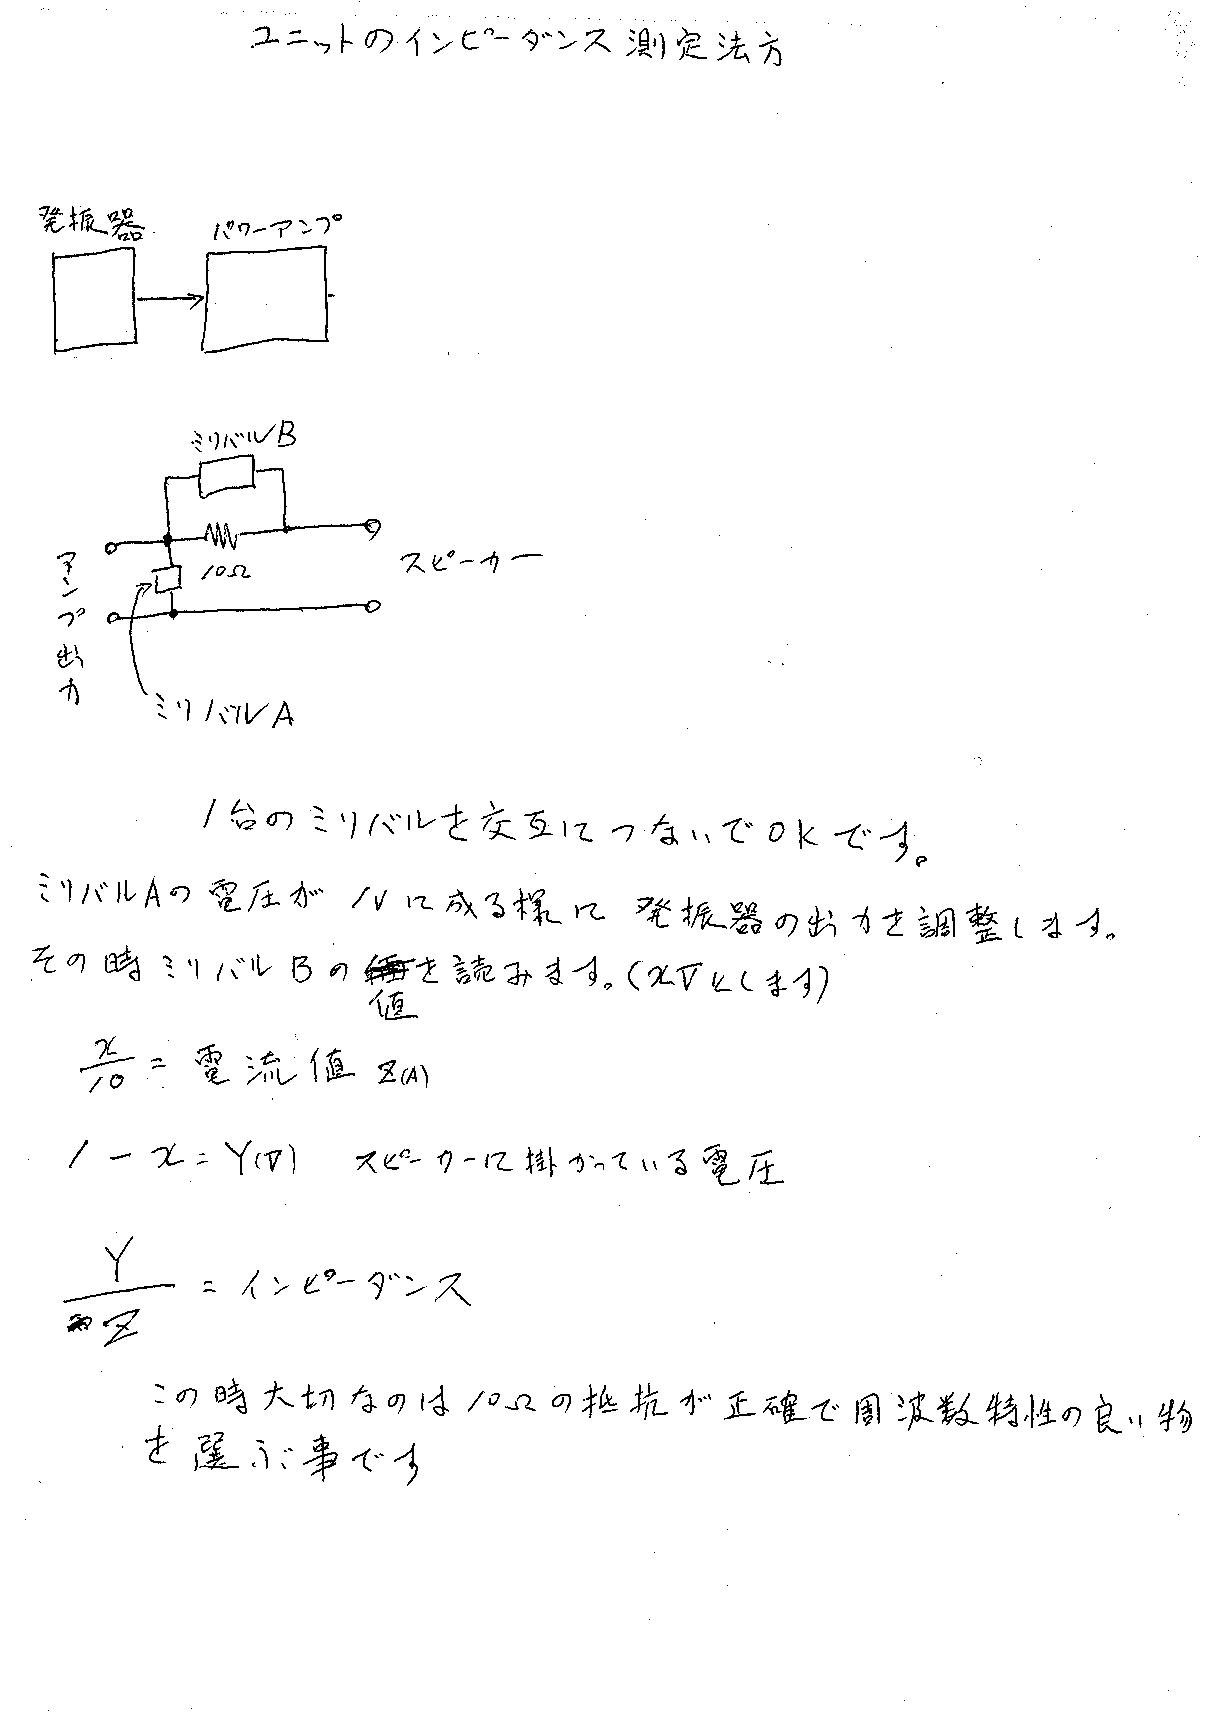 ユニットのインピーダンス測定法方
発振器
パワーアンプ
ミリバルB
10Ω
アンプ出力
スピーカー
ミリバルA
1台のミリバルを交互につないでOKです。
ミリバルAの電圧が1Vに成る様に発振器の出力を調整します。
その時ミリバルBの値を読みます。(xVとします)
x/10 = 電流値 Z(A)
1-x=Y(V) スピーカーに掛かっている電圧
Y/Z = インピーダンス
この時大切なのは10Ωの抵抗が正確で周波数特性の良い物
を選ぶ事です